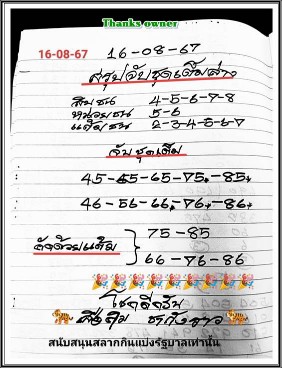 Thanks owner
16-08-67
16-08-67
สรุปจับชุดเต็มล่าง
สิบชน 4-5-6-7-8
หน่วยชน 5-6
แต้มชน 2-3-4-5-6-7
จับชุดเต็ม
45-55-65-75-85
46-56-66-76-86
ตัดด้วยแต้ม
75-85
66-76-86
โชคดีครับ
สนับสนุนสลากกินแบ่งรัฐบาลเท่านั้น